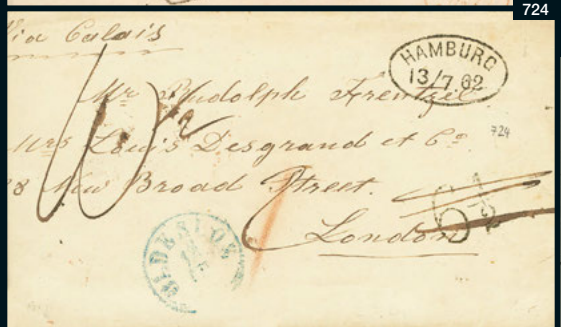 724
Via Calais
HAMBURG
13/7 62
Mr Rudolph Frentzel
724
Mrs Louis Desgrand et Co
28 New Broad Street.
6½
London
OLDESLOE